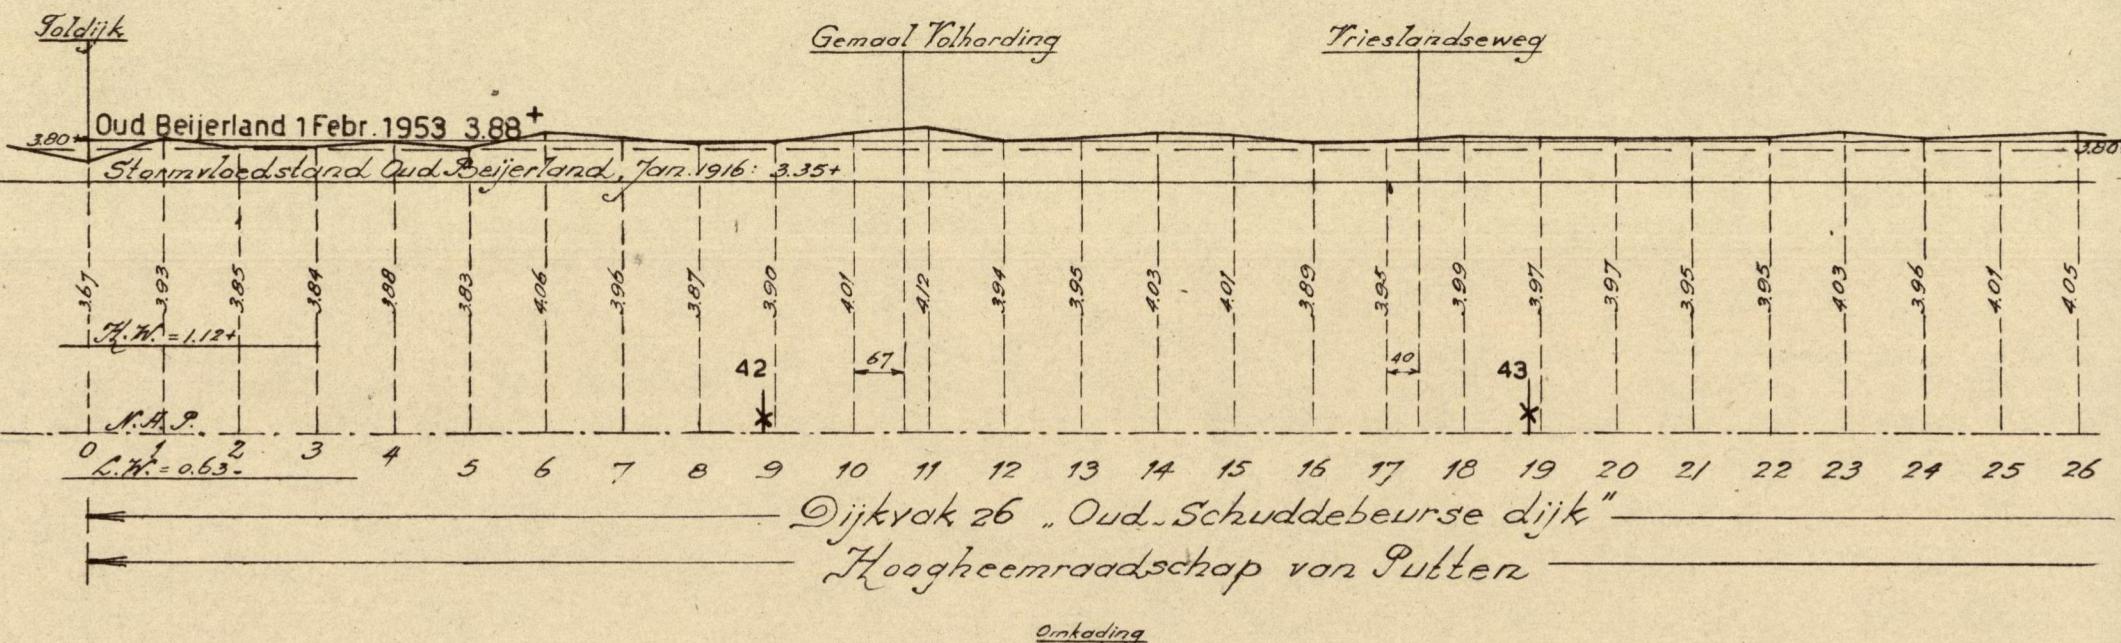 Toldijk
Gemaal Volharding
Vrieslandseweg
Oud Beijerland 1 Febr. 1953 3.88+
3.80+
3.80
Stormvloedstand Oud Beijerland, Jan. 1916: 3.35+
3.67 3.93 3.85 3.84 3.88 3.83 4.06 3.96 3.87 3.90 4.01 4.12 3.94 3.95 4.03 4.01 3.89 3.95 3.99 3.97 3.97 3.95 3.95 4.03 3.96 4.01 4.05
H.W. = 1.12+
42 67 40 43
N.A.P.
0 1 2 3 4 5 6 7 8 9 10 11 12 13 14 15 16 17 18 19 20 21 22 23 24 25 26
L.W. = 0.63-
Dijkvak 26 „Oud-Schuddebeurse dijk"
Hoogheemraadschap van Putten
Omkading